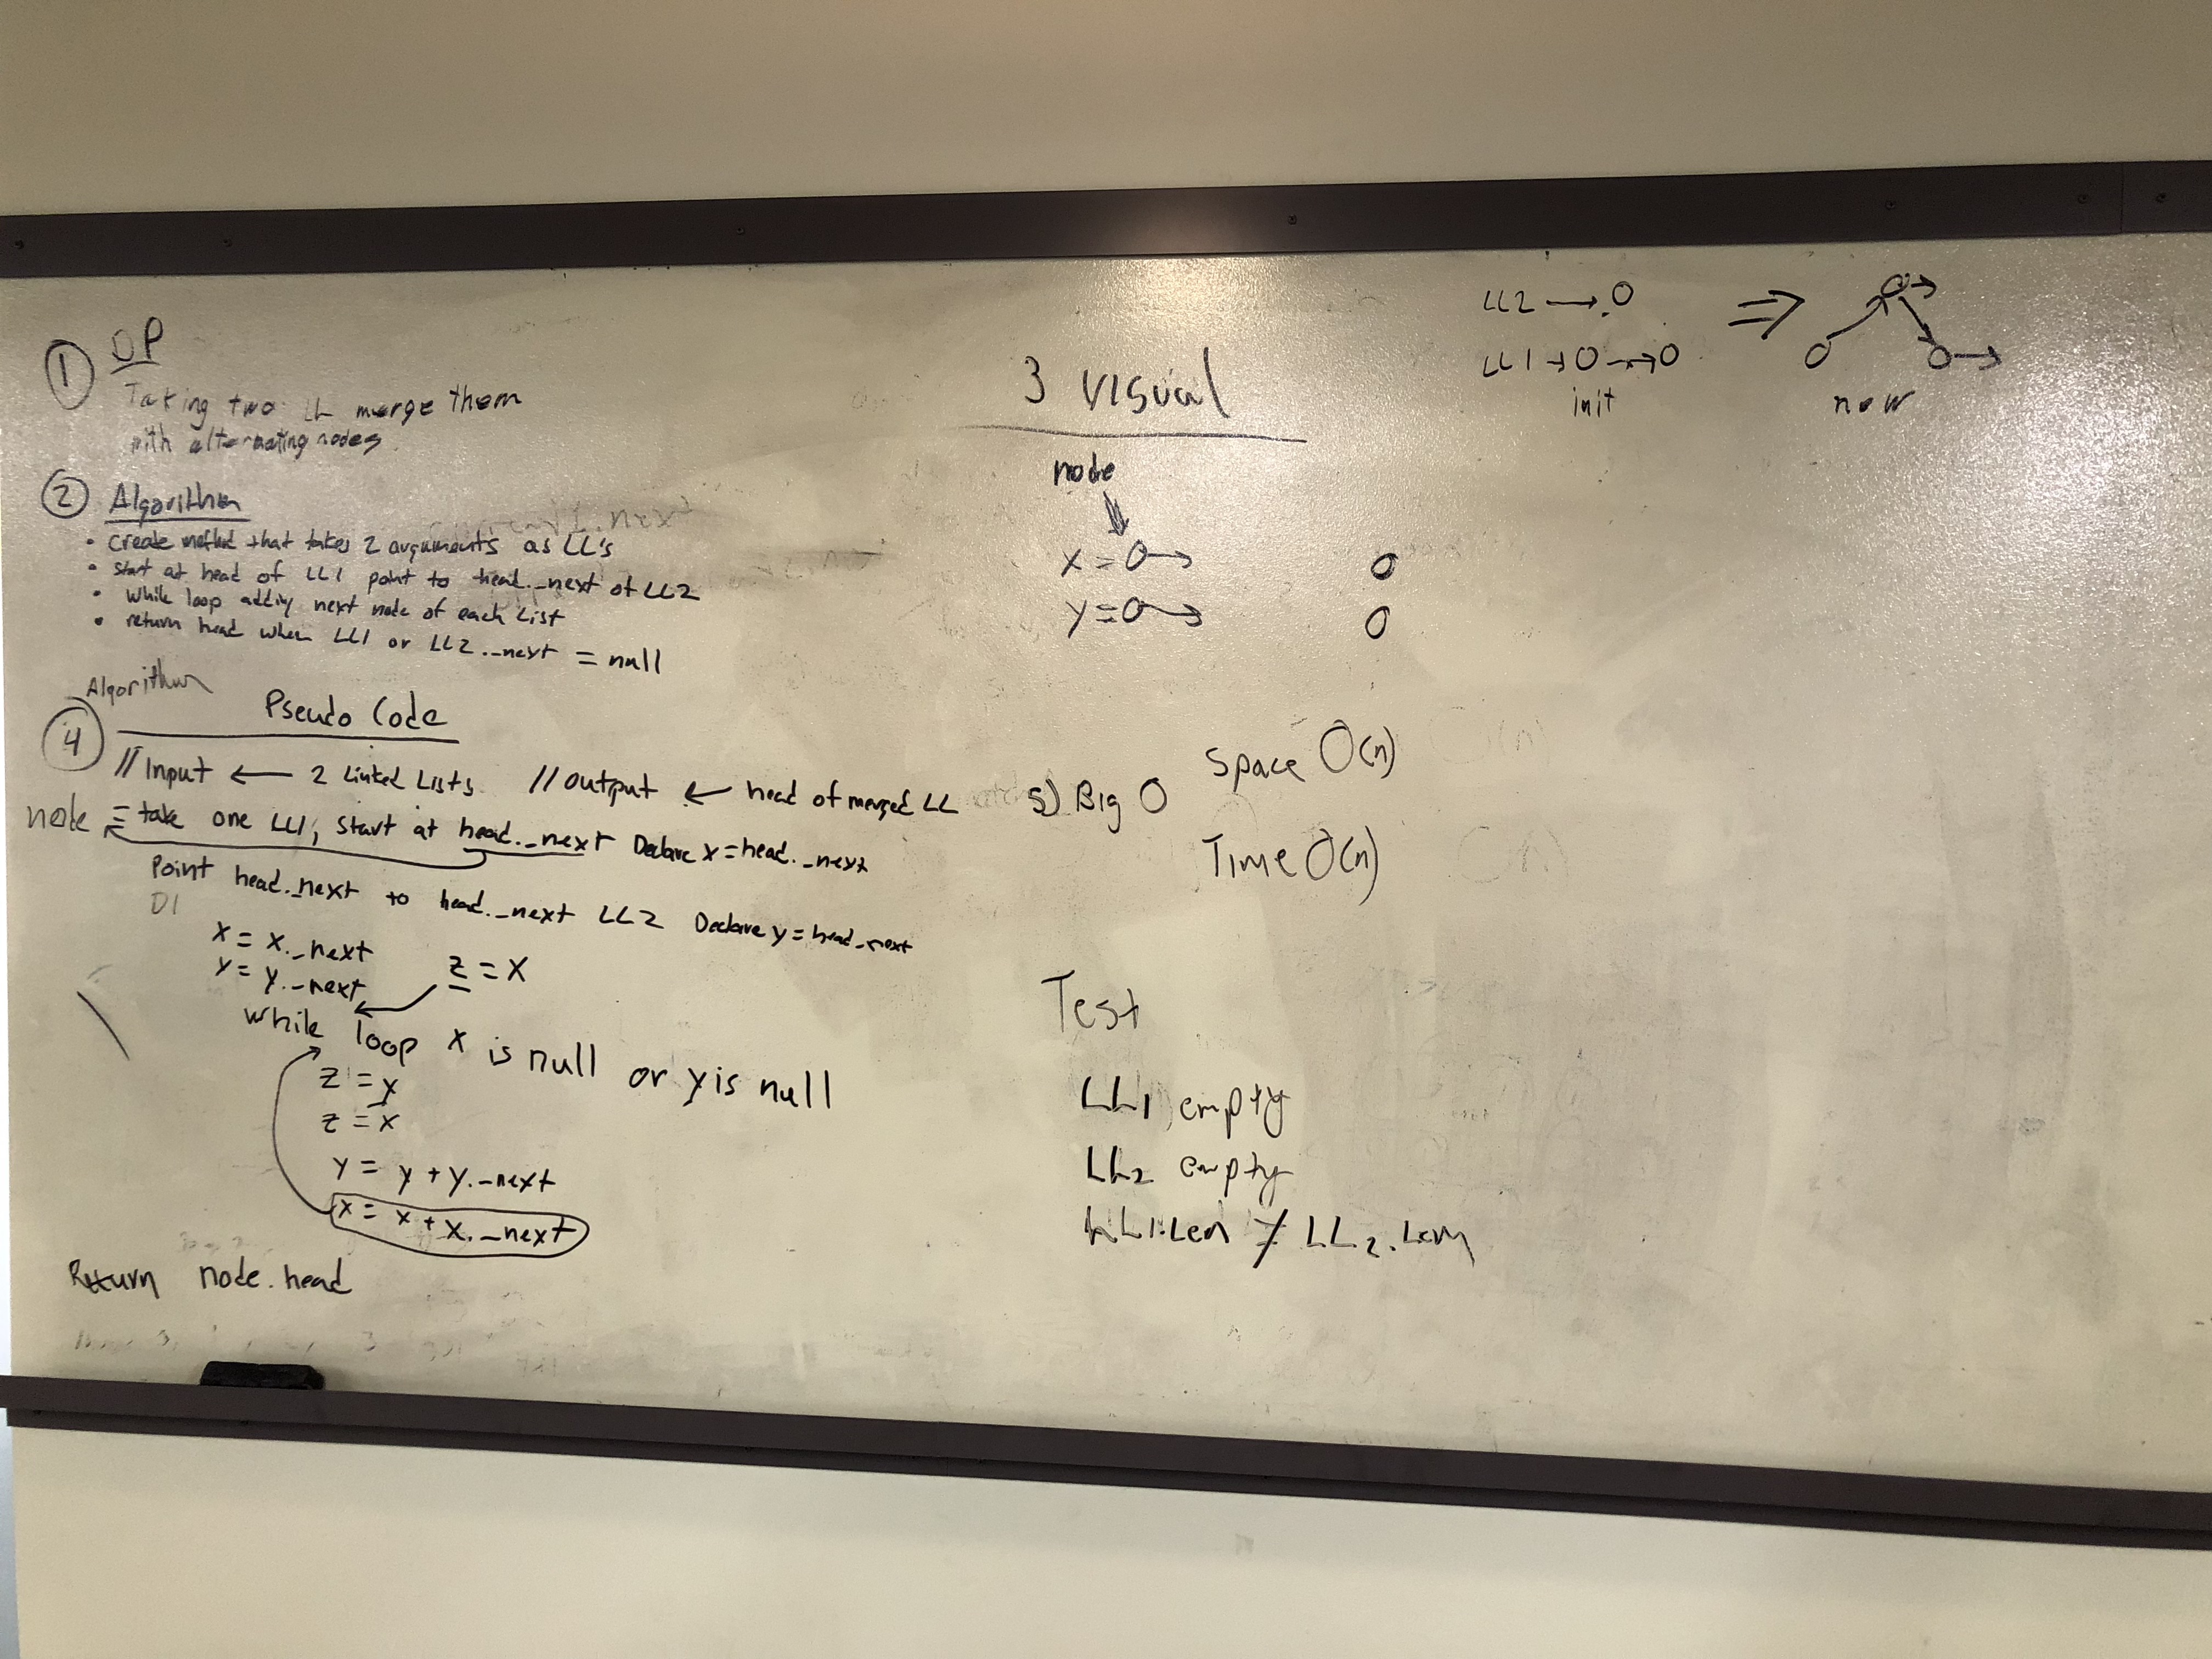 ① OP
Taking two LL merge them
with alternating nodes.
② Algorithm
• create method that takes 2 arguments as LL's
• start at head of LL1 point to head._next of LL2
• while loop adding next node of each List
• return head when LL1 or LL2._next = null
Algorithm
④ Pseudo Code
// Input ← 2 Linked Lists // output ← head of merged LL
node = take one LL1, start at head._next Declare x = head._next
Point head._next to head._next LL2 Declare y = head._next
D1
x = x._next
y = y._next
z = x
while loop x is null or y is null
z = y
z = x
y = y + y._next
x = x + x._next
Return node.head
3 Visual
node
x = O→ O
y = O→ O
LL2 → O
LL1 → O → O
init
⇒
new
5) Big O
Space O(n)
Time O(n)
Test
LL1 empty
LL2 empty
LL1.Len ≠ LL2.Len